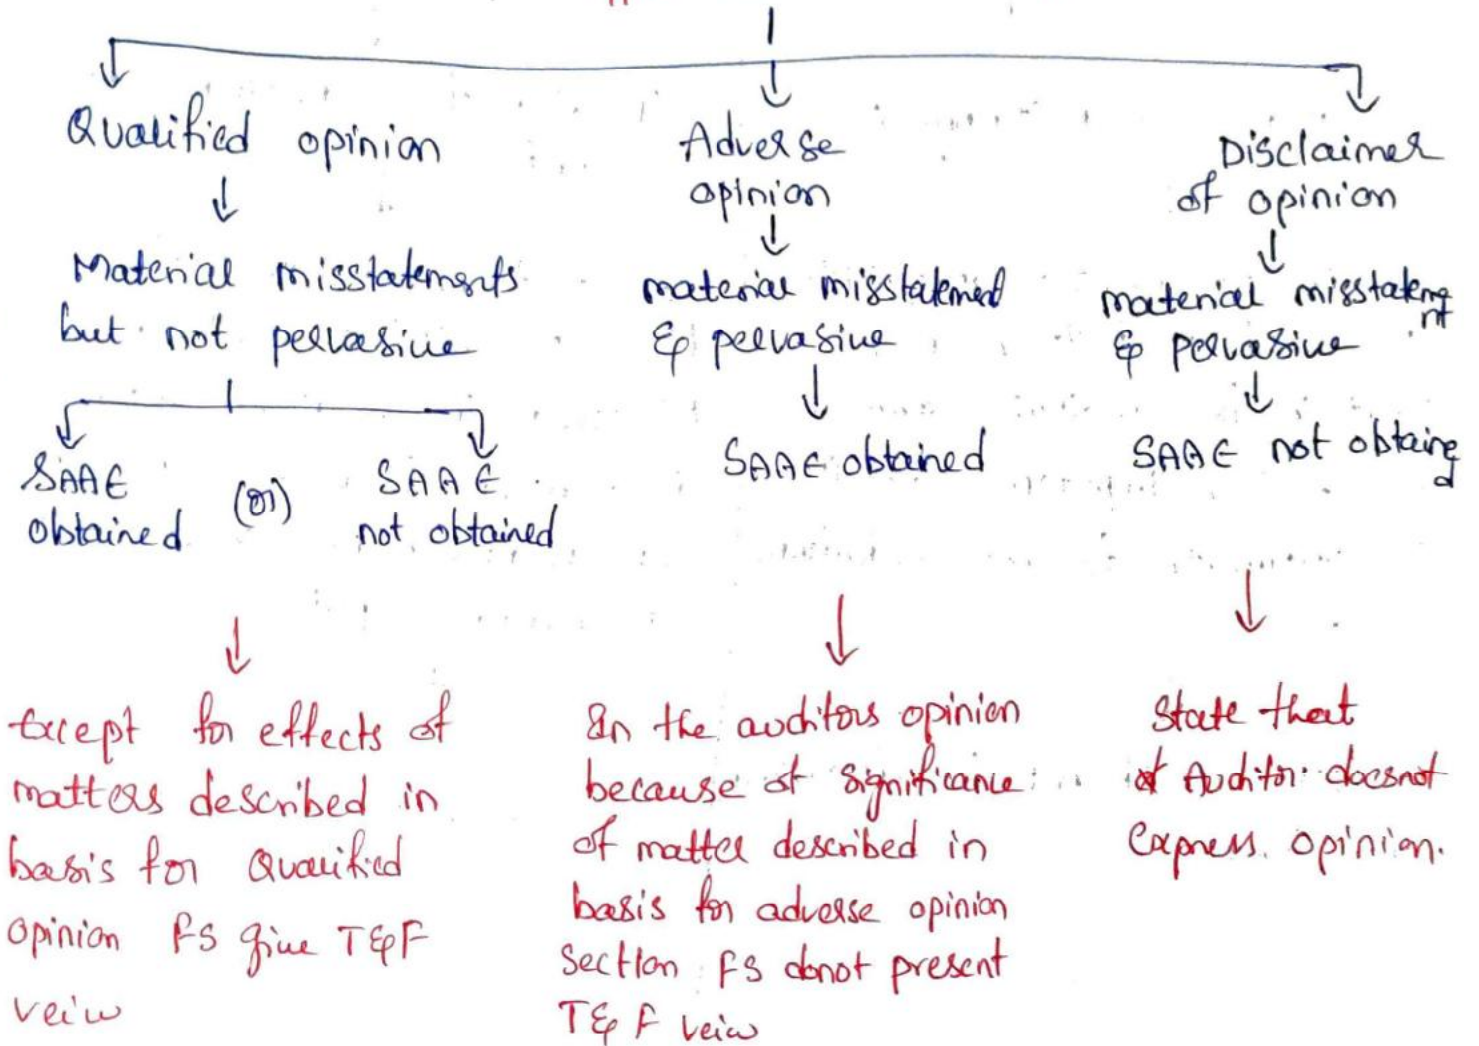 Qualified opinion
Material misstatements
but not pervasive
SAAE
obtained
(or)
SAAE
not obtained
Except for effects of
matters described in
basis for Qualified
opinion FS give T&F
veiw
Adverse
opinion
material misstatement
& pervasive
SAAE obtained
In the auditors opinion
because of significance
of matter described in
basis for adverse opinion
Section FS donot present
T&F veiw
Disclaimer
of opinion
material misstatement
& pervasive
SAAE not obtained
State that
Auditor doesnot
express opinion.